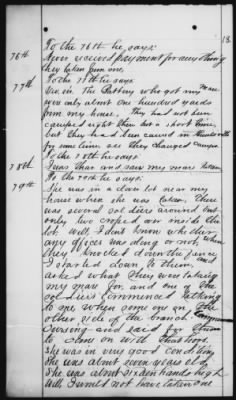 18
To the 76th he, says:
76th Never received payment for anything
they taken from me.
77th To the 77th he says:
Yes, sir. The Battery who got my mare
was only about one hundred yards
from my house. They had not been
camped right there but a short time,
but they had been camped in
for some time before they changed camps.
78th To the 78th he says:
I was thar and saw my mare taken.
79th To the 79th he says:
She was in a clover lot near my
house when she was taken. There
was several soldiers around but
only two come in side the
lot. Well, I don't know whether
any officer was thar or not, when
they knocked down the fence
I started down to them, and
asked what they were taking
my mare for, and one of the
soldiers commenced talking
to me, when some one on the
other side of the branch commenced
cursing and said for them
to come on with that horse.
She was in very good condition
She was about seven years old,
She was about sixteen hands high
Well, I would not have taken one